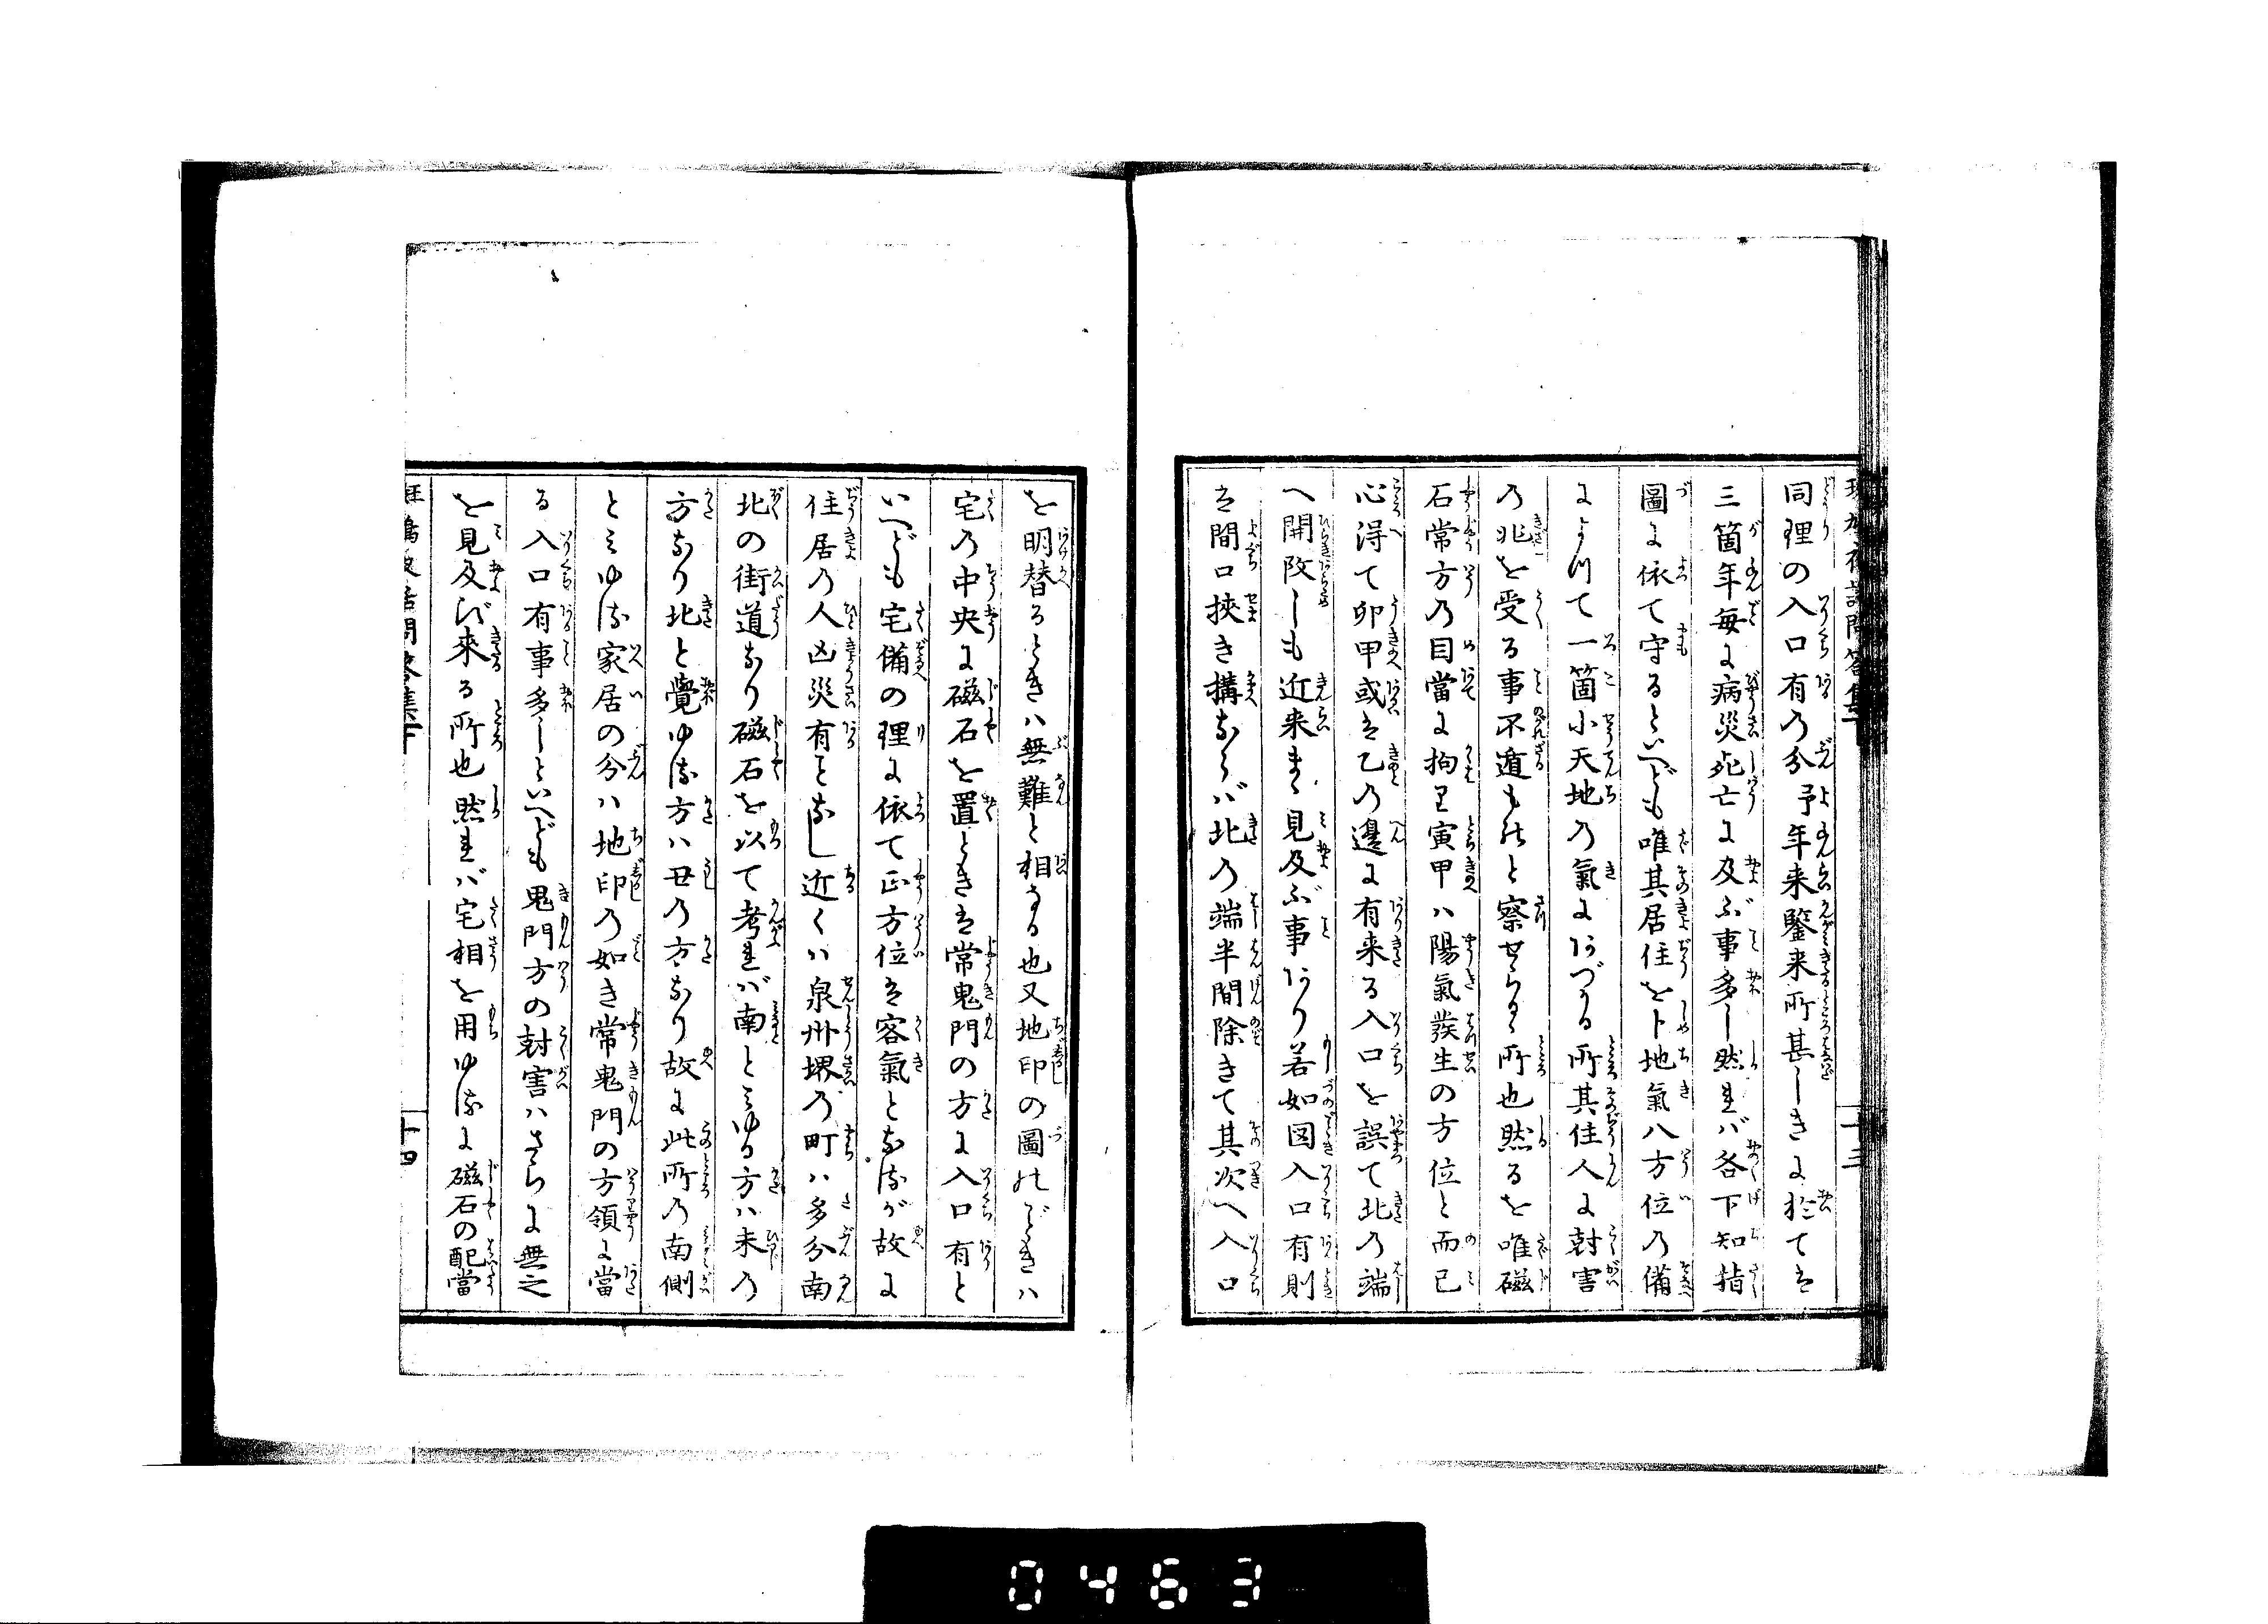 同理の入口有の分予年来鑒来所甚しきに於ては
三箇年毎に病災死亡に及ぶ事多し然れバ各下知指
圖に依て守るといへども唯其居住を卜地氣八方位の備
によつて一箇小天地の氣にあづかる所其住人に尅害
の兆を受る事不遁ものと察せらるゝ所也然るを唯磁
石常方の目當に拘り寅甲ハ陽氣発生の方位と而已
心得て卯甲或は乙の邊に有来る入口を誤て北の端
へ開改しも近来まゝ見及ぶ事あり若如図入口有則
は間口挾き構ならバ北の端半間除きて其次へ入口
十三
を明替るときハ無難と相なる也又地印の圖のごときハ
宅の中央に磁石を置ときは常鬼門の方に入口有と
いへども宅備の理に依て正方位は客氣となるが故に
住居の人凶災有となし近くハ泉州堺の町ハ多分南
北の街道なり磁石を以て考れバ南とミゆる方ハ未の
方なり北と覺ゆる方ハ丑の方なり故に此所の南側
とミゆる家居の分ハ地印の如き常鬼門の方領に當
る入口有事多しといへども鬼門方の尅害ハさらに無之
を見及び来る所也然れバ宅相を用ゆるに磁石の配當
十四
0463